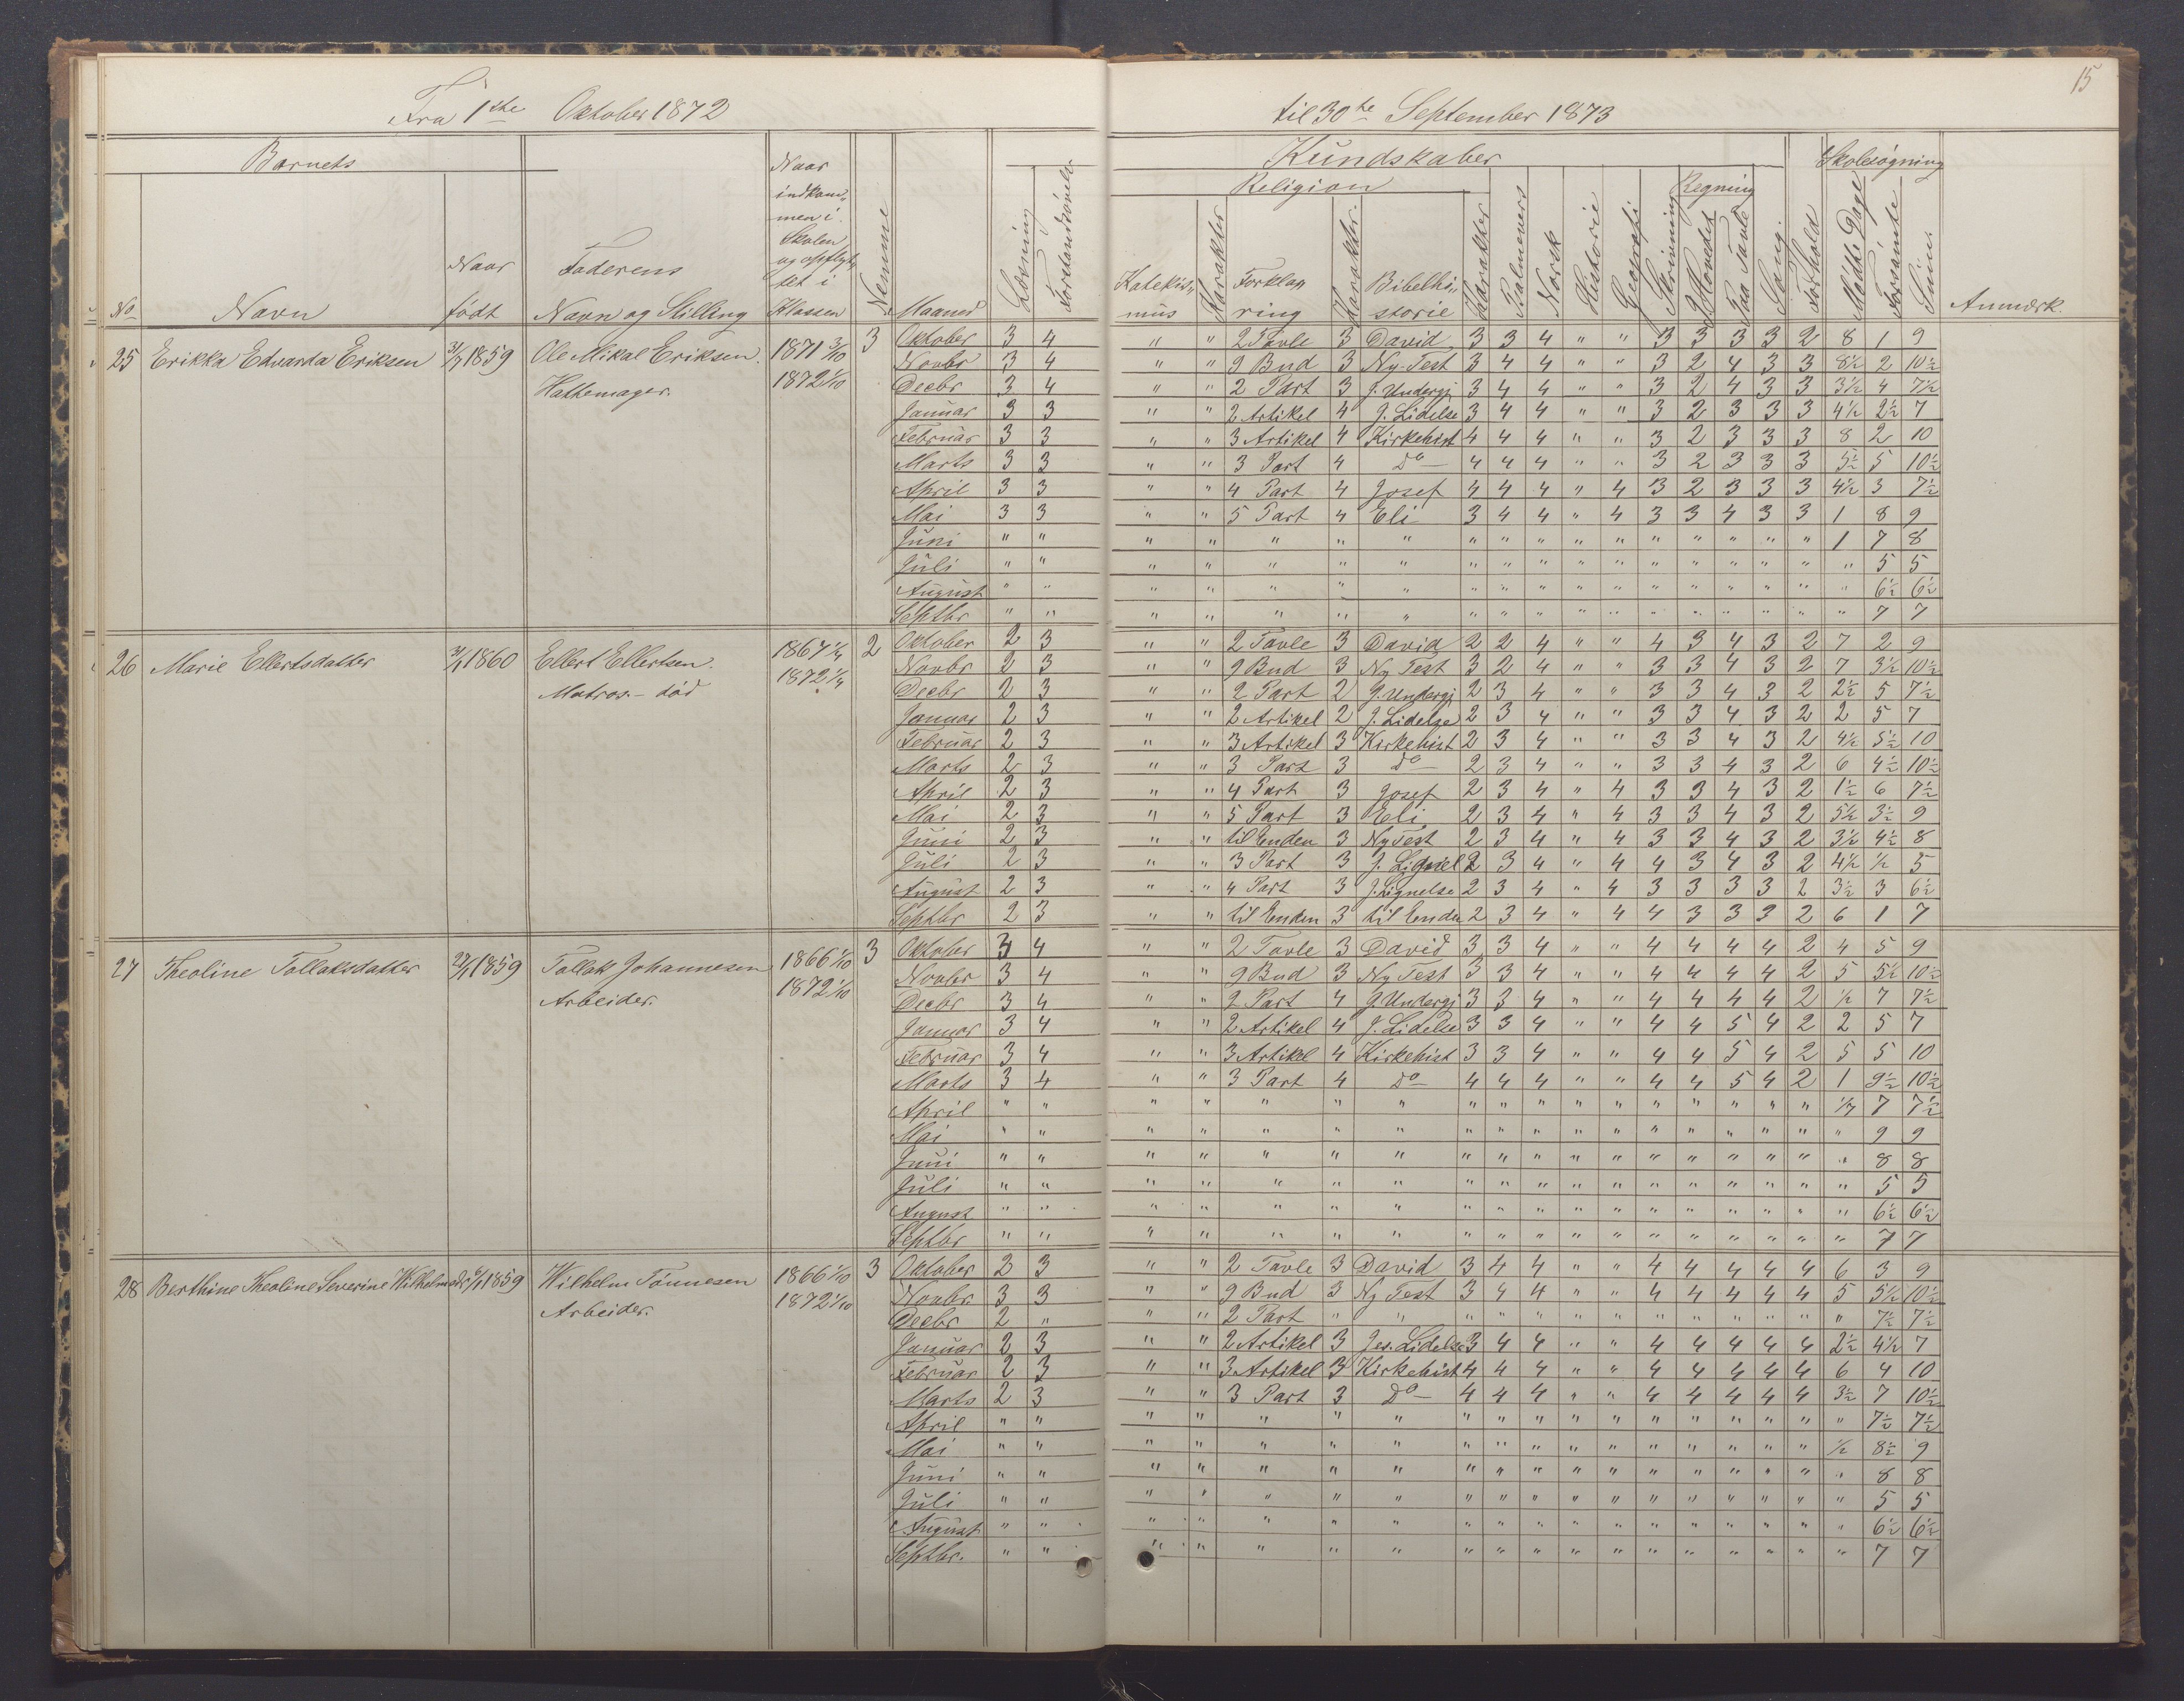 Fra 1ste Oktober 1872 til 30te September 1873
15
Barnets Kundskaber Skolesøgning
Religion Regning
No Navn Naar født Faderens Navn og Stilling Naar indkommen i Skolen og opflyttet i Klassen Nemme Maaned Læsning Forstandsøvelse Katekismus Karakter Forklaring Karakter Bibelhistorie Karakter Salmevers Norsk Historie Geografi Skrivning I Hovedet Paa Tavle Sang Forhold Mødte Dage Forsømte Sum Anmærk.
25 Erikka Edvarda Eriksen 31/7 1859 Ole Mikal Eriksen. 1871 3/10 3 Oktober 3 4 " " 2 Tavle 3 David 3 3 4 " " 3 3 3 3 2 8 1 9
Hattemager. 1872 1/10 Novbr 3 4 " " 9 Bud 3 Ny-Test 3 4 4 " " 3 2 4 3 3 8½ 2 10½
Decbr 3 4 " " 2 Part 3 J. Undergj 3 4 4 " " 3 2 4 3 3 3½ 4 7½
Januar 3 3 " " 2 Artikel 4 J. Lidelse 3 4 4 " " 3 2 3 3 3 4½ 2½ 7
Februar 3 3 " " 3 Artikel 4 Kirkehist 4 4 4 " " 3 2 3 3 3 8 2 10
Marts 3 3 " " 3 Part 4 do 4 4 4 " " 3 2 3 3 3 5½ 5 10½
April 3 3 " " 4 Part 4 Josef 4 4 4 " 4 3 2 3 3 3 4½ 3 7½
Mai 3 3 " " 5 Part 4 Eli 3 4 4 " 4 3 3 4 3 3 1 8 9
Juni " " " " " " " " " " " " " " " " " 1 7 8
Juli " " " " " " " " " " " " " " " " " " 5 5
August " " " " " " " " " " " " " " " " " " 6½ 6½
Septbr " " " " " " " " " " " " " " " " " " 7 7
26 Marie Ellertsdatter 1860 Ellert Ellertsen. 1867 2 Oktober 2 3 " " 2 Tavle 3 David 2 2 4 " " 4 3 4 3 2 7 2 9
Matros. - død 1872 Novbr 2 3 " " 9 Bud 3 Ny Test 3 2 4 " " 3 3 4 3 2 7 3½ 10½
Decbr 2 3 " " 2 Part 2 J. Undergj 2 3 4 " " 3 3 4 3 2 2½ 5 7½
Januar 2 3 " " 2 Artikel 2 J. Lidelse 2 3 4 " " 3 3 4 3 2 2 5 7
Februar 2 3 " " 3 Artikel 3 Kirkehist 2 3 4 " " 3 3 4 3 2 4½ 5½ 10
Marts 2 3 " " 3 Part 3 do 2 3 4 " " 3 3 4 3 2 6 4½ 10½
April 2 3 " " 4 Part 3 Josef 2 3 4 " 4 3 3 4 3 2 1½ 6 7½
Mai 2 3 " " 5 Part 3 Eli 2 3 4 " 4 3 3 4 3 2 5½ 3½ 9
Juni 2 3 " " til Enden 3 Ny Test 2 3 4 " 4 3 3 4 3 2 3½ 4½ 8
Juli 2 3 " " 3 Part 3 J. Lignel 2 3 4 " 4 4 3 4 3 2 4½ ½ 5
August 2 3 " " 4 Part 3 J. Lignelse 2 3 4 " 4 3 3 3 3 2 3½ 3 6½
Septbr 2 3 " " til Enden 3 til Enden 2 3 4 " 4 4 3 3 3 2 6 1 7
27 Theoline Tollaksdatter 1859 Tollak Johannesen 1866 1/10 3 Oktober 3 4 " " 2 Tavle 3 David 3 3 4 " " 4 4 4 4 2 4 5 9
Arbeider. 1872 1/10 Novbr 3 4 " " 9 Bud 3 Ny Test 3 3 4 " " 4 4 4 4 2 5 5½ 10½
Decbr 3 4 " " 2 Part 4 J. Undergj 3 3 4 " " 4 4 4 4 2 ½ 7 7½
Januar 3 4 " " 2 Artikel 4 J. Lidelse 3 3 4 " " 4 4 5 4 2 2 5 7
Februar 3 4 " " 3 Artikel 4 Kirkehist 3 3 4 " " 4 4 5 4 2 5 5 10
Marts 3 4 " " 3 Part 4 do 4 4 4 " " 4 4 5 4 2 1 9½ 10½
April " " " " " " " " " " " " " " " " " 7 7½
Mai " " " " " " " " " " " " " " " " " " 9 9
Juni " " " " " " " " " " " " " " " " " " 8 8
Juli " " " " " " " " " " " " " " " " " " 5 5
August " " " " " " " " " " " " " " " " " " 6½ 6½
Septbr " " " " " " " " " " " " " " " " " " 7 7
28 Berthine Theoline Severine Wilhelmsdr 1859 Wilhelm Tönnesen 1866 1/10 3 Oktober 2 3 " " 2 Tavle 3 David 3 4 4 " " 4 4 4 4 4 6 3 9
Arbeider. 1872 1/10 Novbr. 3 3 " " 9 Bud 3 Ny Test 3 4 4 " " 4 4 4 4 4 5 5½ 10½
Decbr 2 " " " 2 Part " " " " " " " " " " " " " 7½ 7½
Januar 2 3 " " 2 Artikel 3 Jes. Lidelse 3 4 4 " " 4 4 4 4 4 2½ 4½ 7
Februar 2 3 " " 3 Artikel 3 Kirkehist 4 4 4 " " 4 4 4 4 4 6 4 10
Marts 2 3 " " 3 Part 3 do 4 4 4 " " 4 4 4 4 4 3½ 7 10½
April " " " " " " " " " " " " " " " " " " 7½ 7½
Mai " " " " " " " " " " " " " " " " " ½ 8½ 9
Juni " " " " " " " " " " " " " " " " " " 8 8
Juli " " " " " " " " " " " " " " " " " " 5 5
August " " " " " " " " " " " " " " " " " " 6½ 6½
Septbr. " " " " " " " " " " " " " " " " " " 7 7